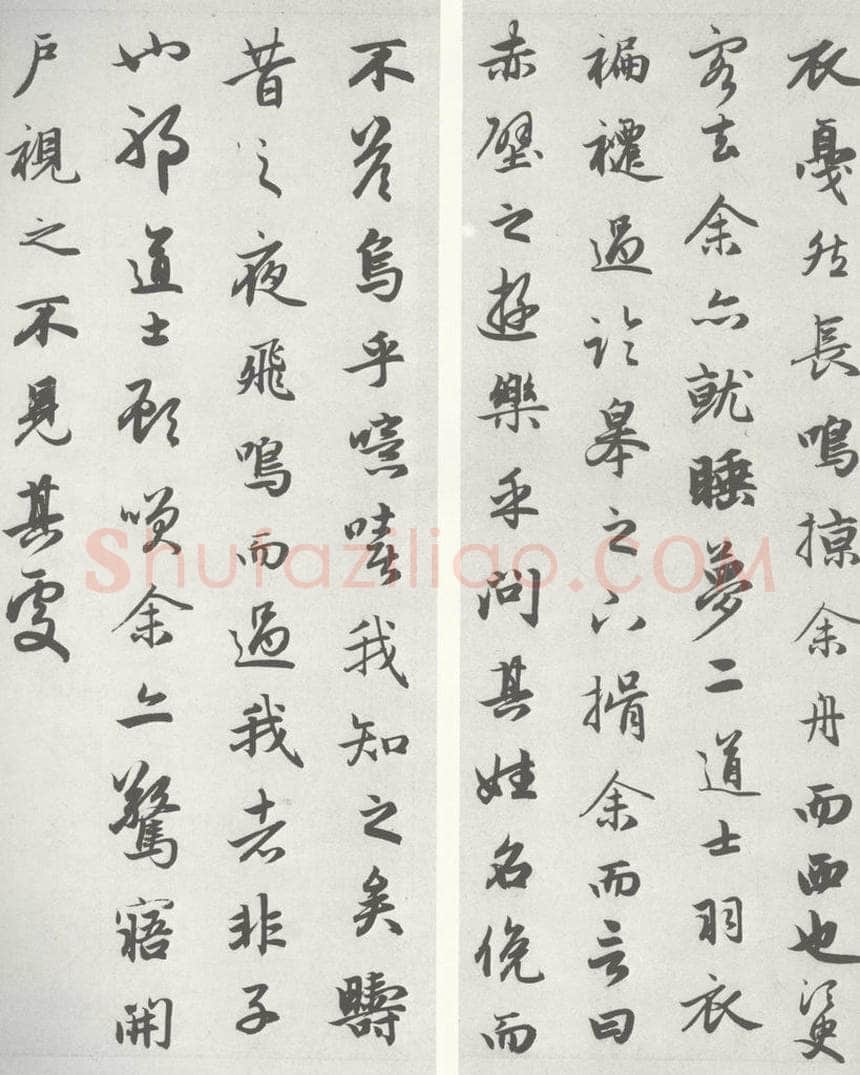 衣戛然長鳴掠余舟而西也須臾
客去余亦就睡夢二道士羽衣
褊褼過臨皋之下揖余而言曰
赤壁之遊樂乎問其姓名俛而
不答烏乎噫嘻我知之矣疇
昔之夜飛鳴而過我者非子
也邪道士顧咲余亦驚寤開
戶視之不見其處
Shufaziliao.COM